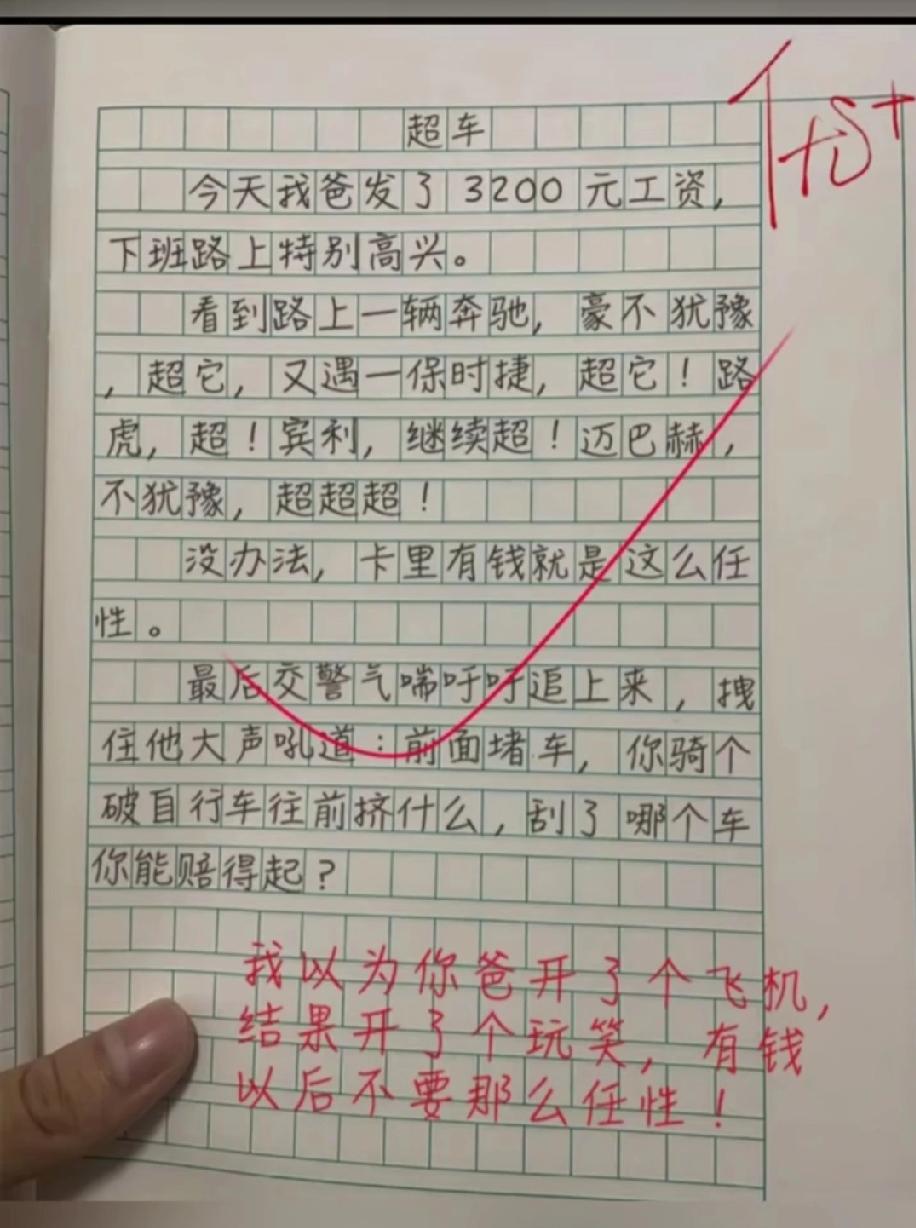 超车
优+
今天我爸发了3200元工资,
下班路上特别高兴。
看到路上一辆奔驰,豪不犹豫
,超它,又遇一保时捷,超它!路
虎,超!宾利,继续超!迈巴赫,
不犹豫,超超超!
没办法,卡里有钱就是这么任
性。
最后交警气喘吁吁追上来,拽
住他大声吼道:前面堵车,你骑个
破自行车往前挤什么,刮了哪个车
你能赔得起?
我以为你爸开了个飞机,
结果开了个玩笑,有钱
以后不要那么任性!